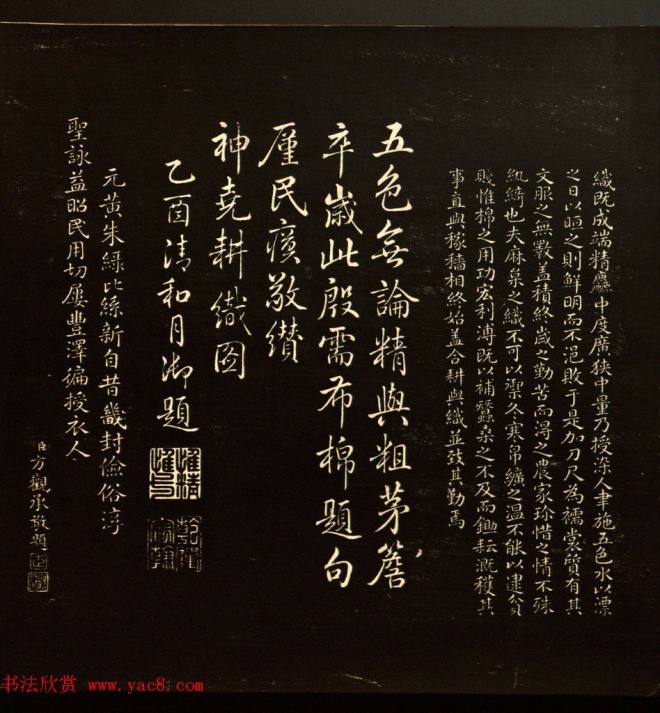 織既成端精麤中度廣狹中量乃授染人聿施五色水以漂
之日以晅之則鮮明而不浥敗于是加刀尺為襦裳質有其
文服之無斁蓋積終歲之勤苦而得之農家珍惜之情不殊
紈綺也夫麻枲之織不可以禦冬寒帛纊之温不能以逮貧
賤惟棉之用功宏利溥既以補蠶桑之不及而鋤耘溉穫其
事直與稼穡相終始蓋合耕與織並致其勤焉
五色無論精與粗茅簷
卒歲此殷需布棉題句
廑民瘼敬纘
神堯耕織圗
乙酉清和月御題
惟精惟一
乾隆宸翰
元黄朱緑比絲新自昔畿封儉俗淳
聖詠益昭民用切屢豐澤徧授衣人
臣方觀承敬題
书法欣赏 www.yac8.com